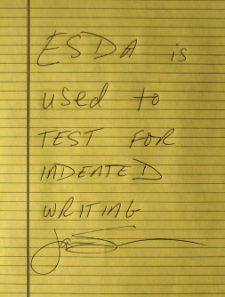 ESDA is
used to
TEST FOR
INDENTED
WRITING